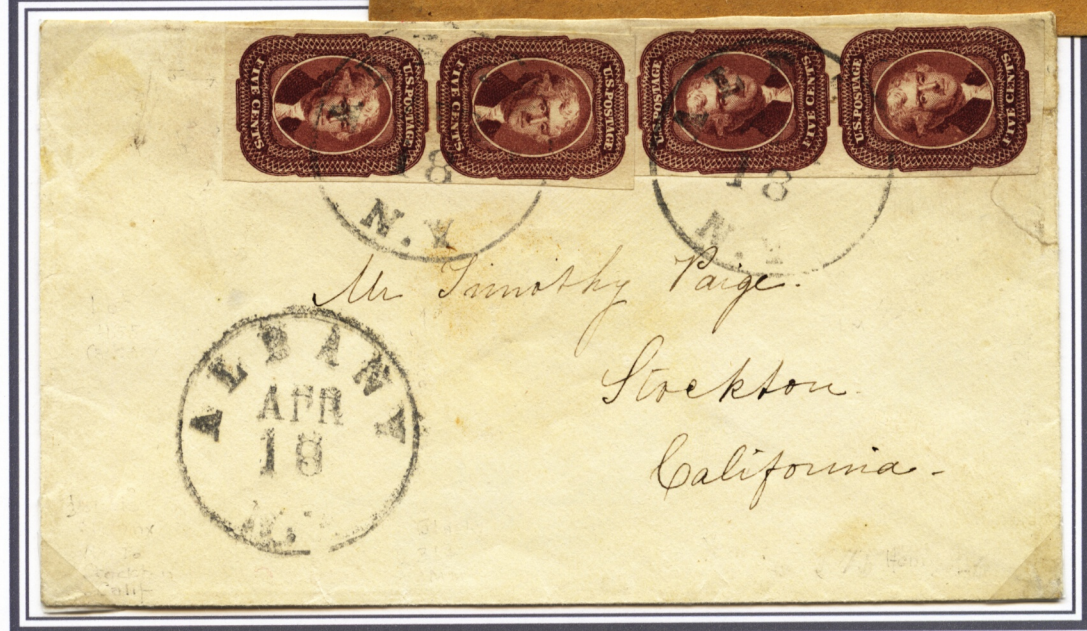 FIVE CENTS
U.S. POSTAGE
FIVE CENTS
U.S. POSTAGE
U.S. POSTAGE
FIVE CENTS
U.S. POSTAGE
FIVE CENTS
18
N.Y
18
N.Y
Mr Timothy Paige.
Stockton
California -
ALBANY
APR
18
N.Y.